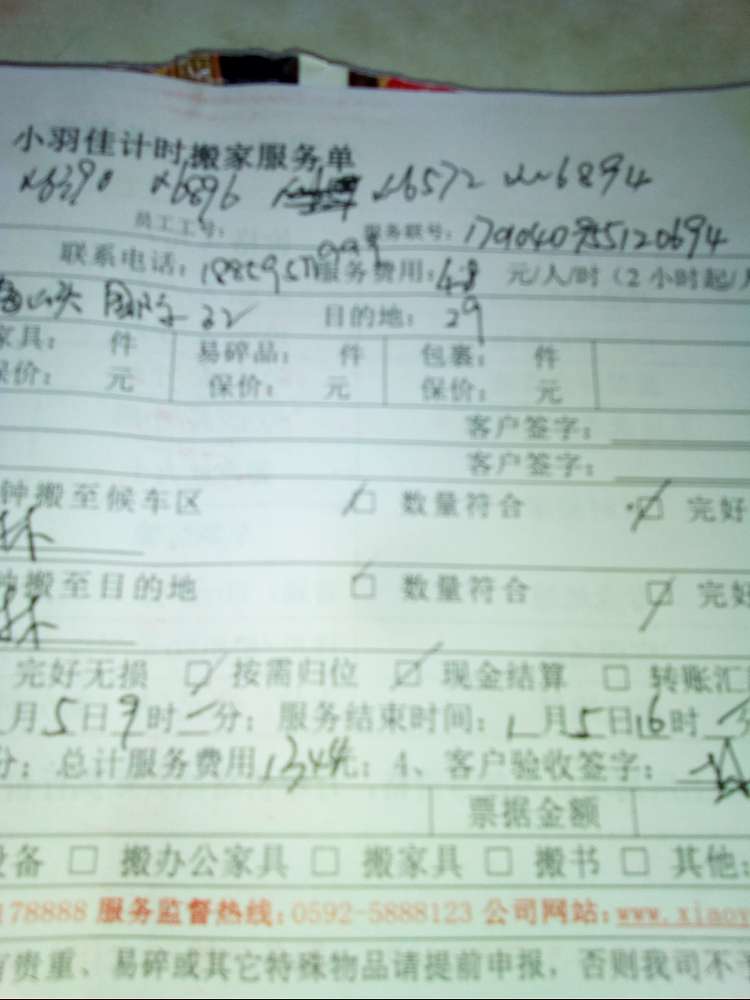 小羽佳计时搬家服务单
x6390 x6896 x6572 x6894
员工工号： 服务联号：
联系电话： 服务费用：48 元/人/时（2小时起/
目的地：29
家具： 件 易碎品： 件 包裹： 件
保价： 元 保价： 元 保价： 元
客户签字：
客户签字：
钟搬至候车区 □ 数量符合 □ 完好
搬至目的地 □ 数量符合 □ 完好
完好无损 □ 按需归位 □ 现金结算 □ 转账汇
月5日9时 分；服务结束时间：1月5日16时
分；总计服务费用1344元；4、客户验收签字：
票据金额
设备 □ 搬办公家具 □ 搬家具 □ 搬书 □ 其他：
178888 服务监督热线：0592-5888123 公司网站：www.xiaoy
贵重、易碎或其它特殊物品请提前申报，否则我司不